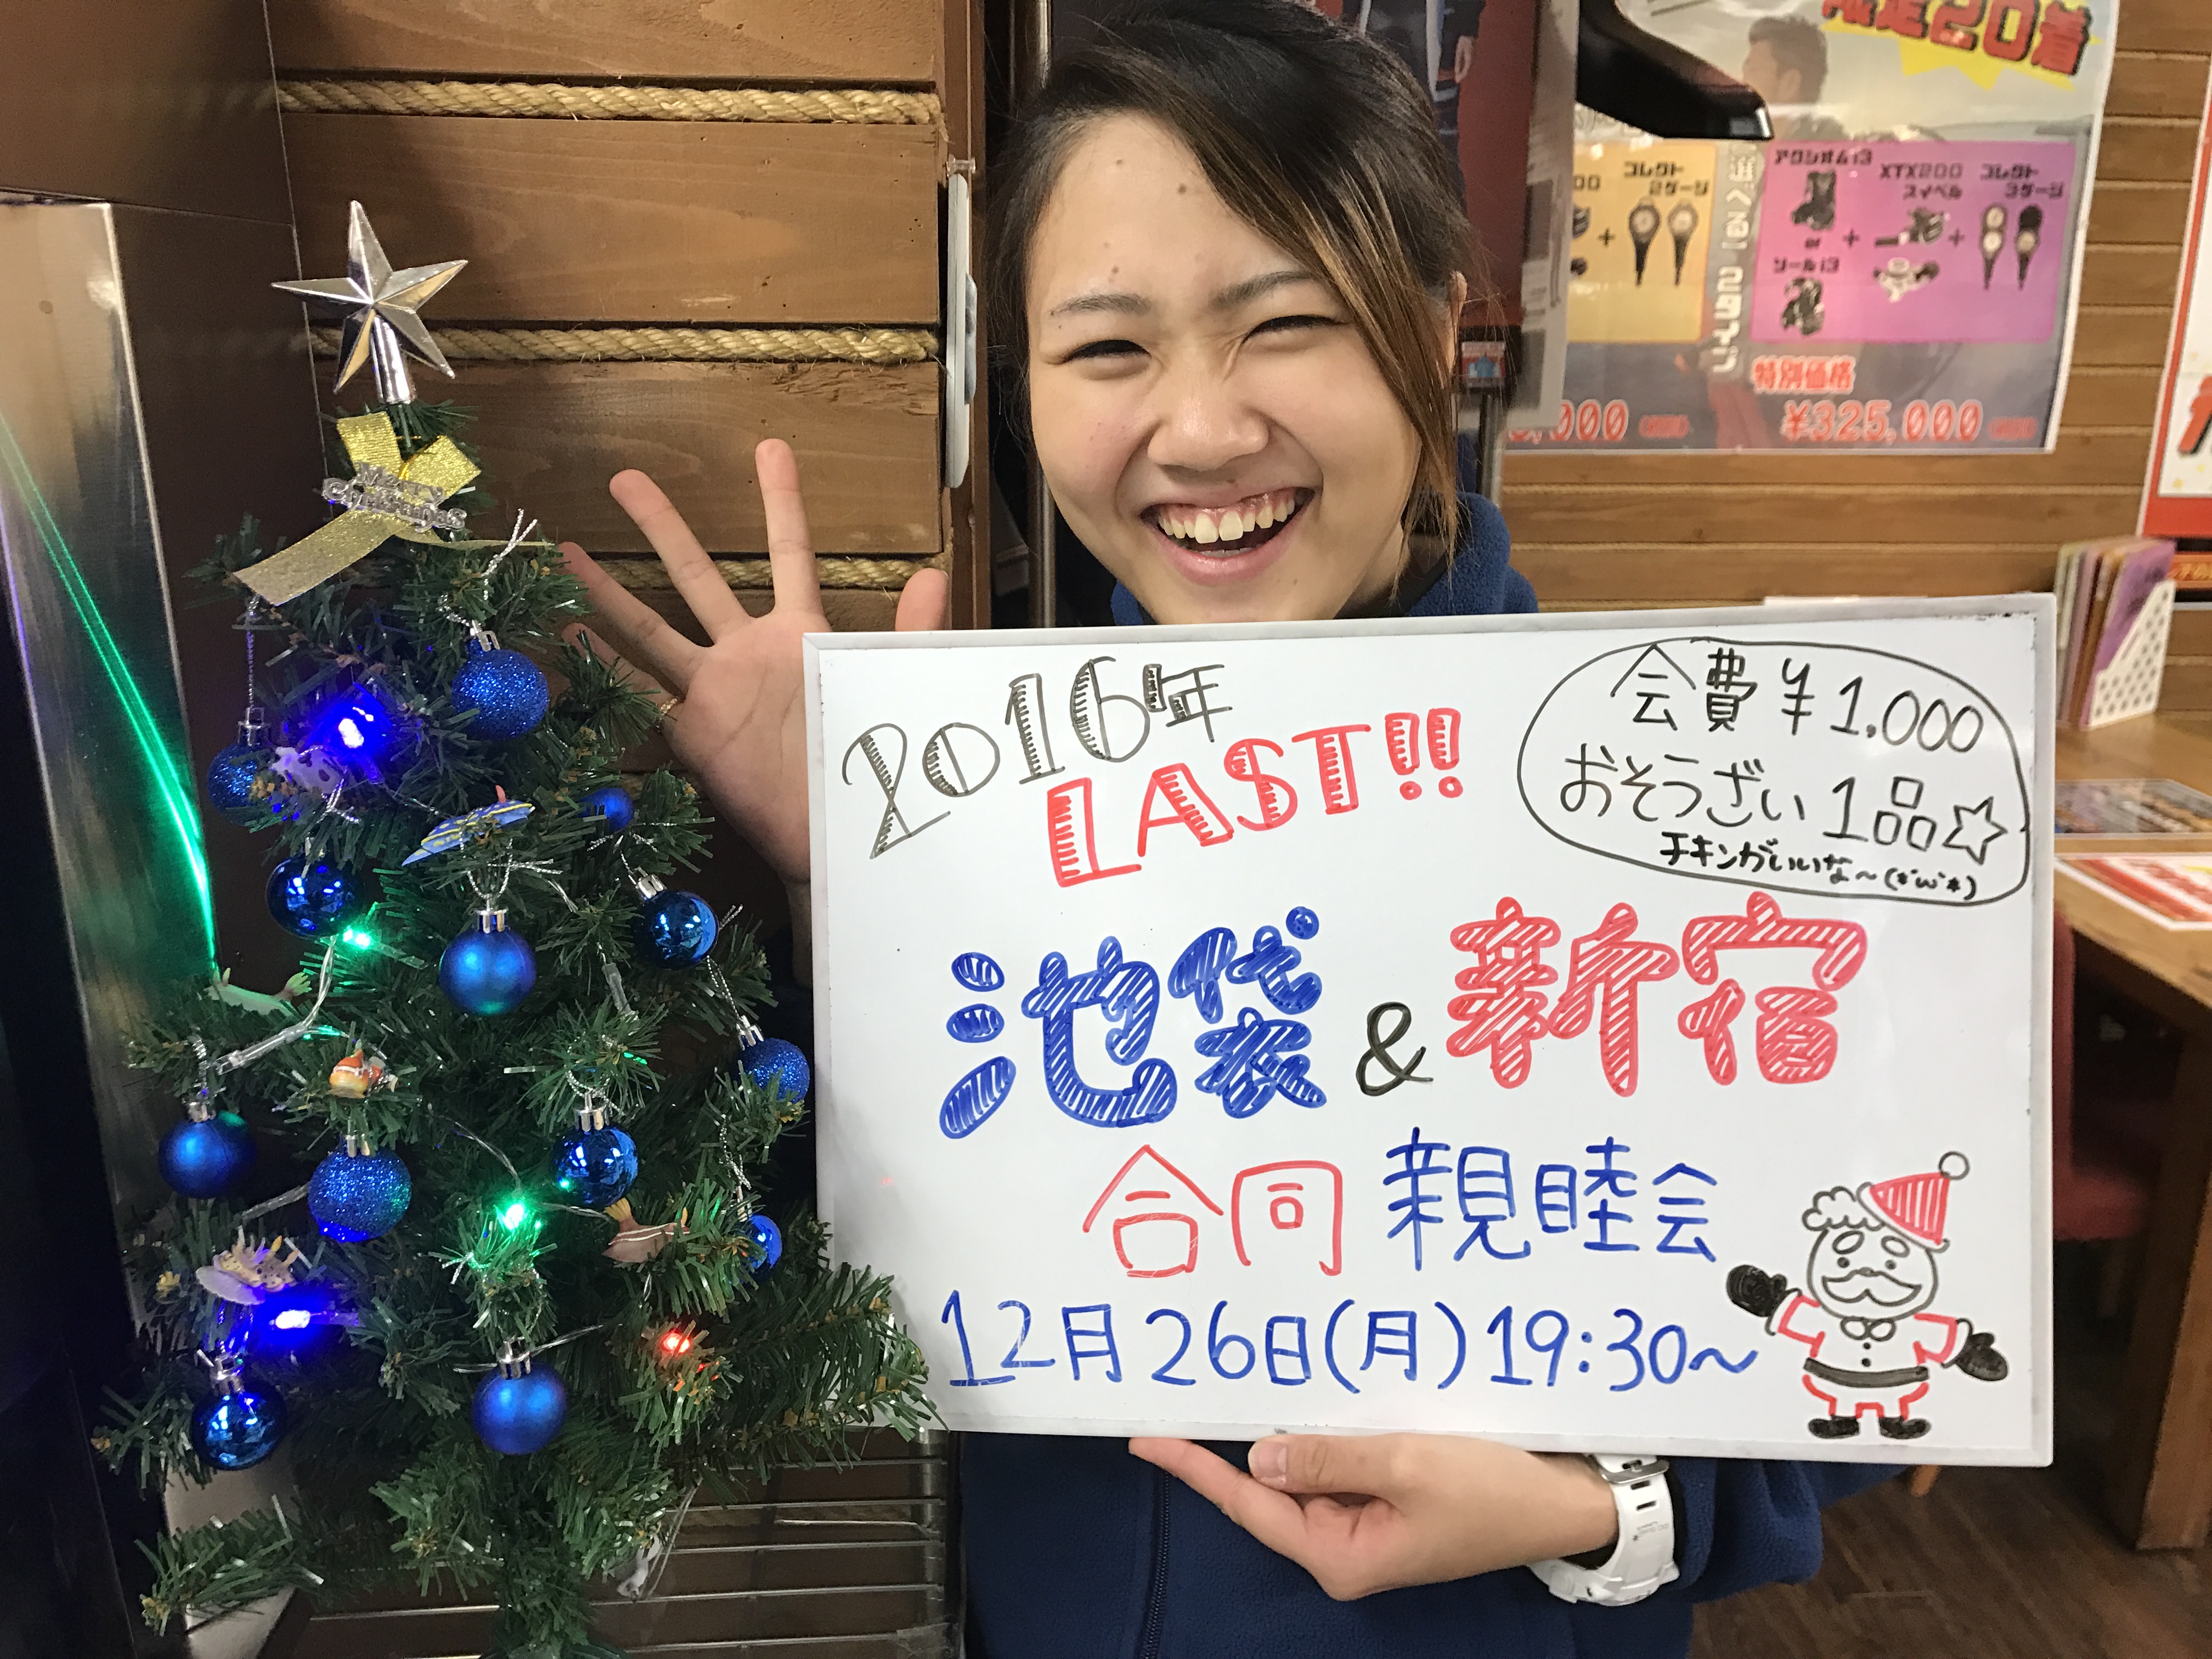 2016年
LAST!!
会費 ¥1,000
おそうざい1品☆
チキンがいいな～(*'ω'*)
池袋&新宿
合同 親睦会
12月26日(月)19:30～
Merry
Christmas
限定20着
コレクト
2ゲージ
アクシオムi3
or
ソールi3
XTX200
スイベル
コレクト
3ゲージ
特別価格
¥325,000